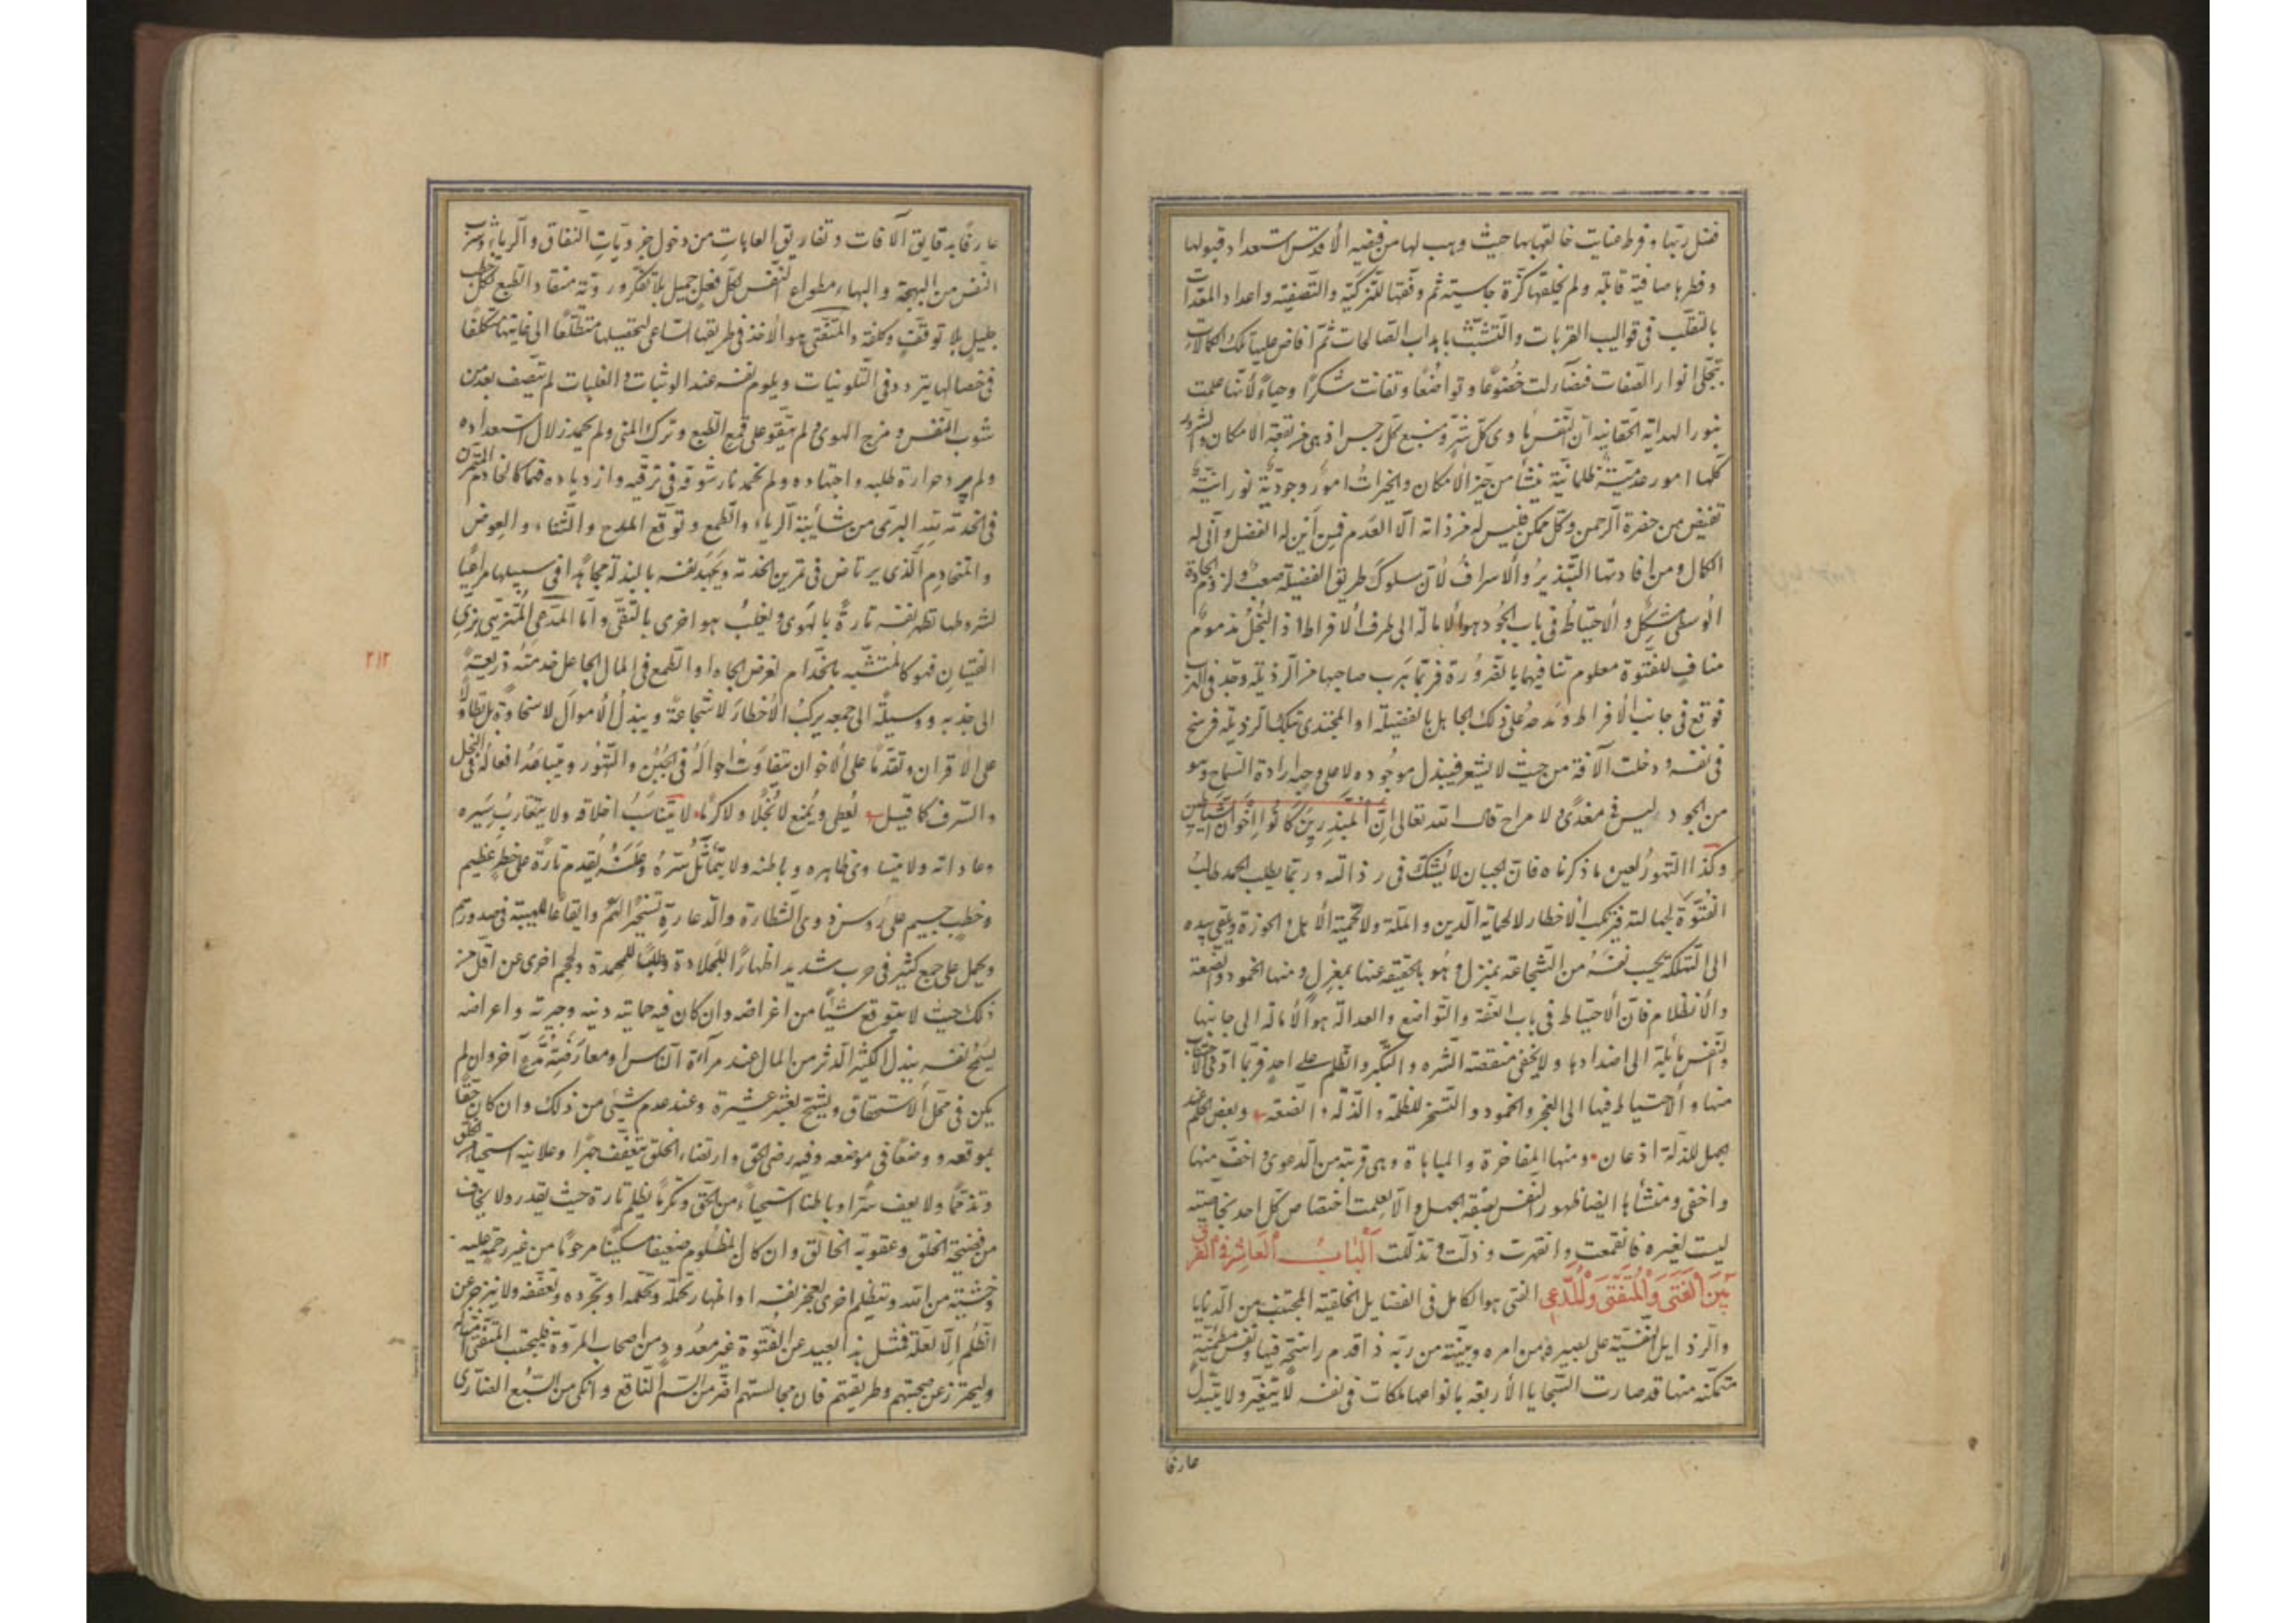 فضل ربّها وفرط عنايت خالقها بها حيث وهب لها من فيضه الأقدس استعداد قبولها
وفطرها صافية قابلة ولم يخلقها كزّة جاسية ثم وفّقها للتزكية والتصفية واعداد المعدّات
بالتقلّب في قواليب القربات والتشبّث باهداب الصالحات ثمّ افاض عليها تلك الكمالات
بتجلّى انوار الصفات فتضآءلت خضوعًا وتواضعًا وتفانت شكرًا وحياءً لأنّها علمت
بنور الهداية الحقانية انّ النفس مأوى كلّ شرّ ومنبع كلّ رجس اذ هي من بقعة الامكان والشرور
كلّها امور عدميّة ظلمانيّة ينشأ من حيّز الأمكان والخيرات امور وجوديّة نورانيّة
تفيض من حضرة الرحمن وكلّ ممكن فليس له من ذاته الّا العدم فمن أين له الفضل وأنّى له
الكمال ومن افادتها التبذير والأسراف لأنّ سلوك طريق الفضيلة صعب ولزوم الجادة
الوسطى مشكل والأحتياط في باب الجود هو الأمالة الى طرف الافراط اذ البخل مذموم
مناف للفتوة معلوم تنافيهما بالضرورة فربّما يهرب صاحبها من الرذيلة وجدّ في الهرب
فوقع في جانب الأفراط ومدحه على ذلك الجاهل بالفضيلة او المجتدى بتلك الرذيلة فرسخ
في نفسه ودخلت الآفة من حيث لا يشعر فيبذل موجوده لا على وجه ارادة السماح وهو
من الجود ليس في مغدى ولا مراح قال الله تعالى إنّ المبذرين كانوا إخوان الشياطين
وكذا التهور لعين ما ذكرناه فانّ الجبان لا يشكّ في رذالته وربّما يطلب الحمد طالب
الفتوّة لجهالته فيركب الأخطار لا لحماية الدين والملّة ولا لحميّة الأهل والحوزة ويلقى بيده
الى التهلكة يحسب نفسه من الشجاعة بمنزل وهو بالحقيقة عنها بمعزل ومنها الخمود والضعة
والأنظلام فانّ الأحتياط في باب العفّة والتواضع والعدالة هو الأمالة الى جانبها
والنفس مايلة الى اضدادها ولا يخفى منقصة الشره والتكبر والظلم على احد فربّما ادّى الاجتناب
منها والأحتياط فيها الى العجز والخمود والتسخر للظلمة والذلّة والضعة وبعض الحلم عند
الجهل للذلّة اذعان ومنها المفاخرة والمباهاة وهي قريبة من الدعوى واخفّ منها
واخفى ومنشأها ايضا ظهور النفس بصفة الجهل والّا لعلمت اختصاص كلّ احد بخاصيّة
ليست لغيره فانقمعت وانقهرت وذلّت وتذلّلت الباب العاشر في الفرق
بين الفتى والمتفتى والمدّعى الفتى هو الكامل في الفضايل الخلقية المجتنب من الدنايا
والرذايل النفسيّة على بصيرة من امره وبيّنة من ربّه ذا قدم راسخة فيها ونفس مطمئنّة
متمكّنة منها قد صارت السجايا الأربعة بانواعها ملكات في نفسه لا يتغيّر ولا يتبدّل
عارفا
عارفًا بدقايق الآفات وتفاريق العاهات من دخول جزويّات النفاق والرياء وشرب
النفس من البهجة والبهاء مطواع النفس لكلّ فعل جميل بلا تفكّر ورويّة منقاد الطبع لكلّ خطب
جليل بلا توقّف وكلفة والمتفتى هو الأخذ في طريقها الساعى لتحصيلها متطلّعًا الى غايتها متكلّفًا
في خصالها يتردد في التلوينات ويلوم نفسه عند الوثبات والغلبات لم يتّصف بعد من
شوب النفس ومزج الهوى ولم يتقو على قمع الطبع وترك المنى ولم يخمد زلال استعداده
ولم يبرد حرارة طلبه واجتهاده ولم يخمد نار شوقه في ترقيه وازدياده فهما كالخادم المتمرّن
في الخدمة لله البرىّ من شائبة الرياء والطمع وتوقّع المدح والثناء والعوض
والمتخادم الذي يرتاض في تمرين الخدمة ويجهد نفسه بالبذلة مجاهدًا في سبيلها مراعيًا
لشروطها تظهر نفسه تارةً بالهوى ويغلب هو اخرى بالتقى وأمّا المدّعى المتزيّى بزىّ
الفتيان فهو كالمتشبّه بالخدّام لغرض الجاه او الطمع في المال الجاعل خدمته ذريعةً
٢١٢
الى جذبه ووسيلةً الى جمعه يركب الأخطار لا شجاعةً ويبذل الأموال لا سخاوةً بل تطاولًا
على الأقران وتقدّمًا على الأخوان متفاوت احواله في الجبن والتهور ومتباعد افعاله في البخل
والسرف كما قيل يعطى ويمنع لا بخلًا ولا كرمًا لا يتناسب اخلاقه ولا يتقارب سيره
وعاداته ولا يتساوى ظاهره وباطنه ولا يتماثل سرّه وعلنه يقدم تارةً على خطر عظيم
وخطب جسيم على رؤس ذوى الشطارة والدعارة تسخيرًا لهم وايقاعًا للهيبة في صدورهم
ويحمل على جمع كثير في حرب شديد اظهارًا للجلادة وطلبًا للمحمدة ويحجم اخرى عن اقلّ من
ذلك حيث لا يتوقع شيئًا من اغراضه وان كان فيه حماية دينه وحيرته واعراضه
يسمح نفسه ببذل الكثير الدثر من المال عند مرآة الناس او معارضة مدّع آخر وان لم
يكن في محلّ الأستحقاق ويشحّ بعشر عشيره وعند عدم شئ من ذلك وان كان حقّا
بموقعه ووضعًا في موضعه وفيه رضى الحقّ وارتضاء الخلق يتعفّف جهرًا وعلانية استحياء من الخلق
وتذمّمًا ولا يعف سرًّا وباطنا استحياءً من الحقّ وتكرمًا يظلم تارة حيث يقدر ولا يخاف
من فضيحة الخلق وعقوبة الخالق وان كان المظلوم ضعيفا مسكينا مرحومًا من غير رحمة عليه
وخشية من الله وينظلم اخرى لعجز نفسه او اظهار تحمّله وتحلّمه او تجرّده وتعفّفه ولا ينزجر عن
الظلم إلّا لعلّة فمثل هذا بعيد عن الفتوة غير معدود من اصحاب المروّة فليجتنب المتفتى امثاله
وليحترز عن صحبتهم وطريقتهم فان مجالستهم اضرّ من السمّ الناقع وانكى من السبع الضارى